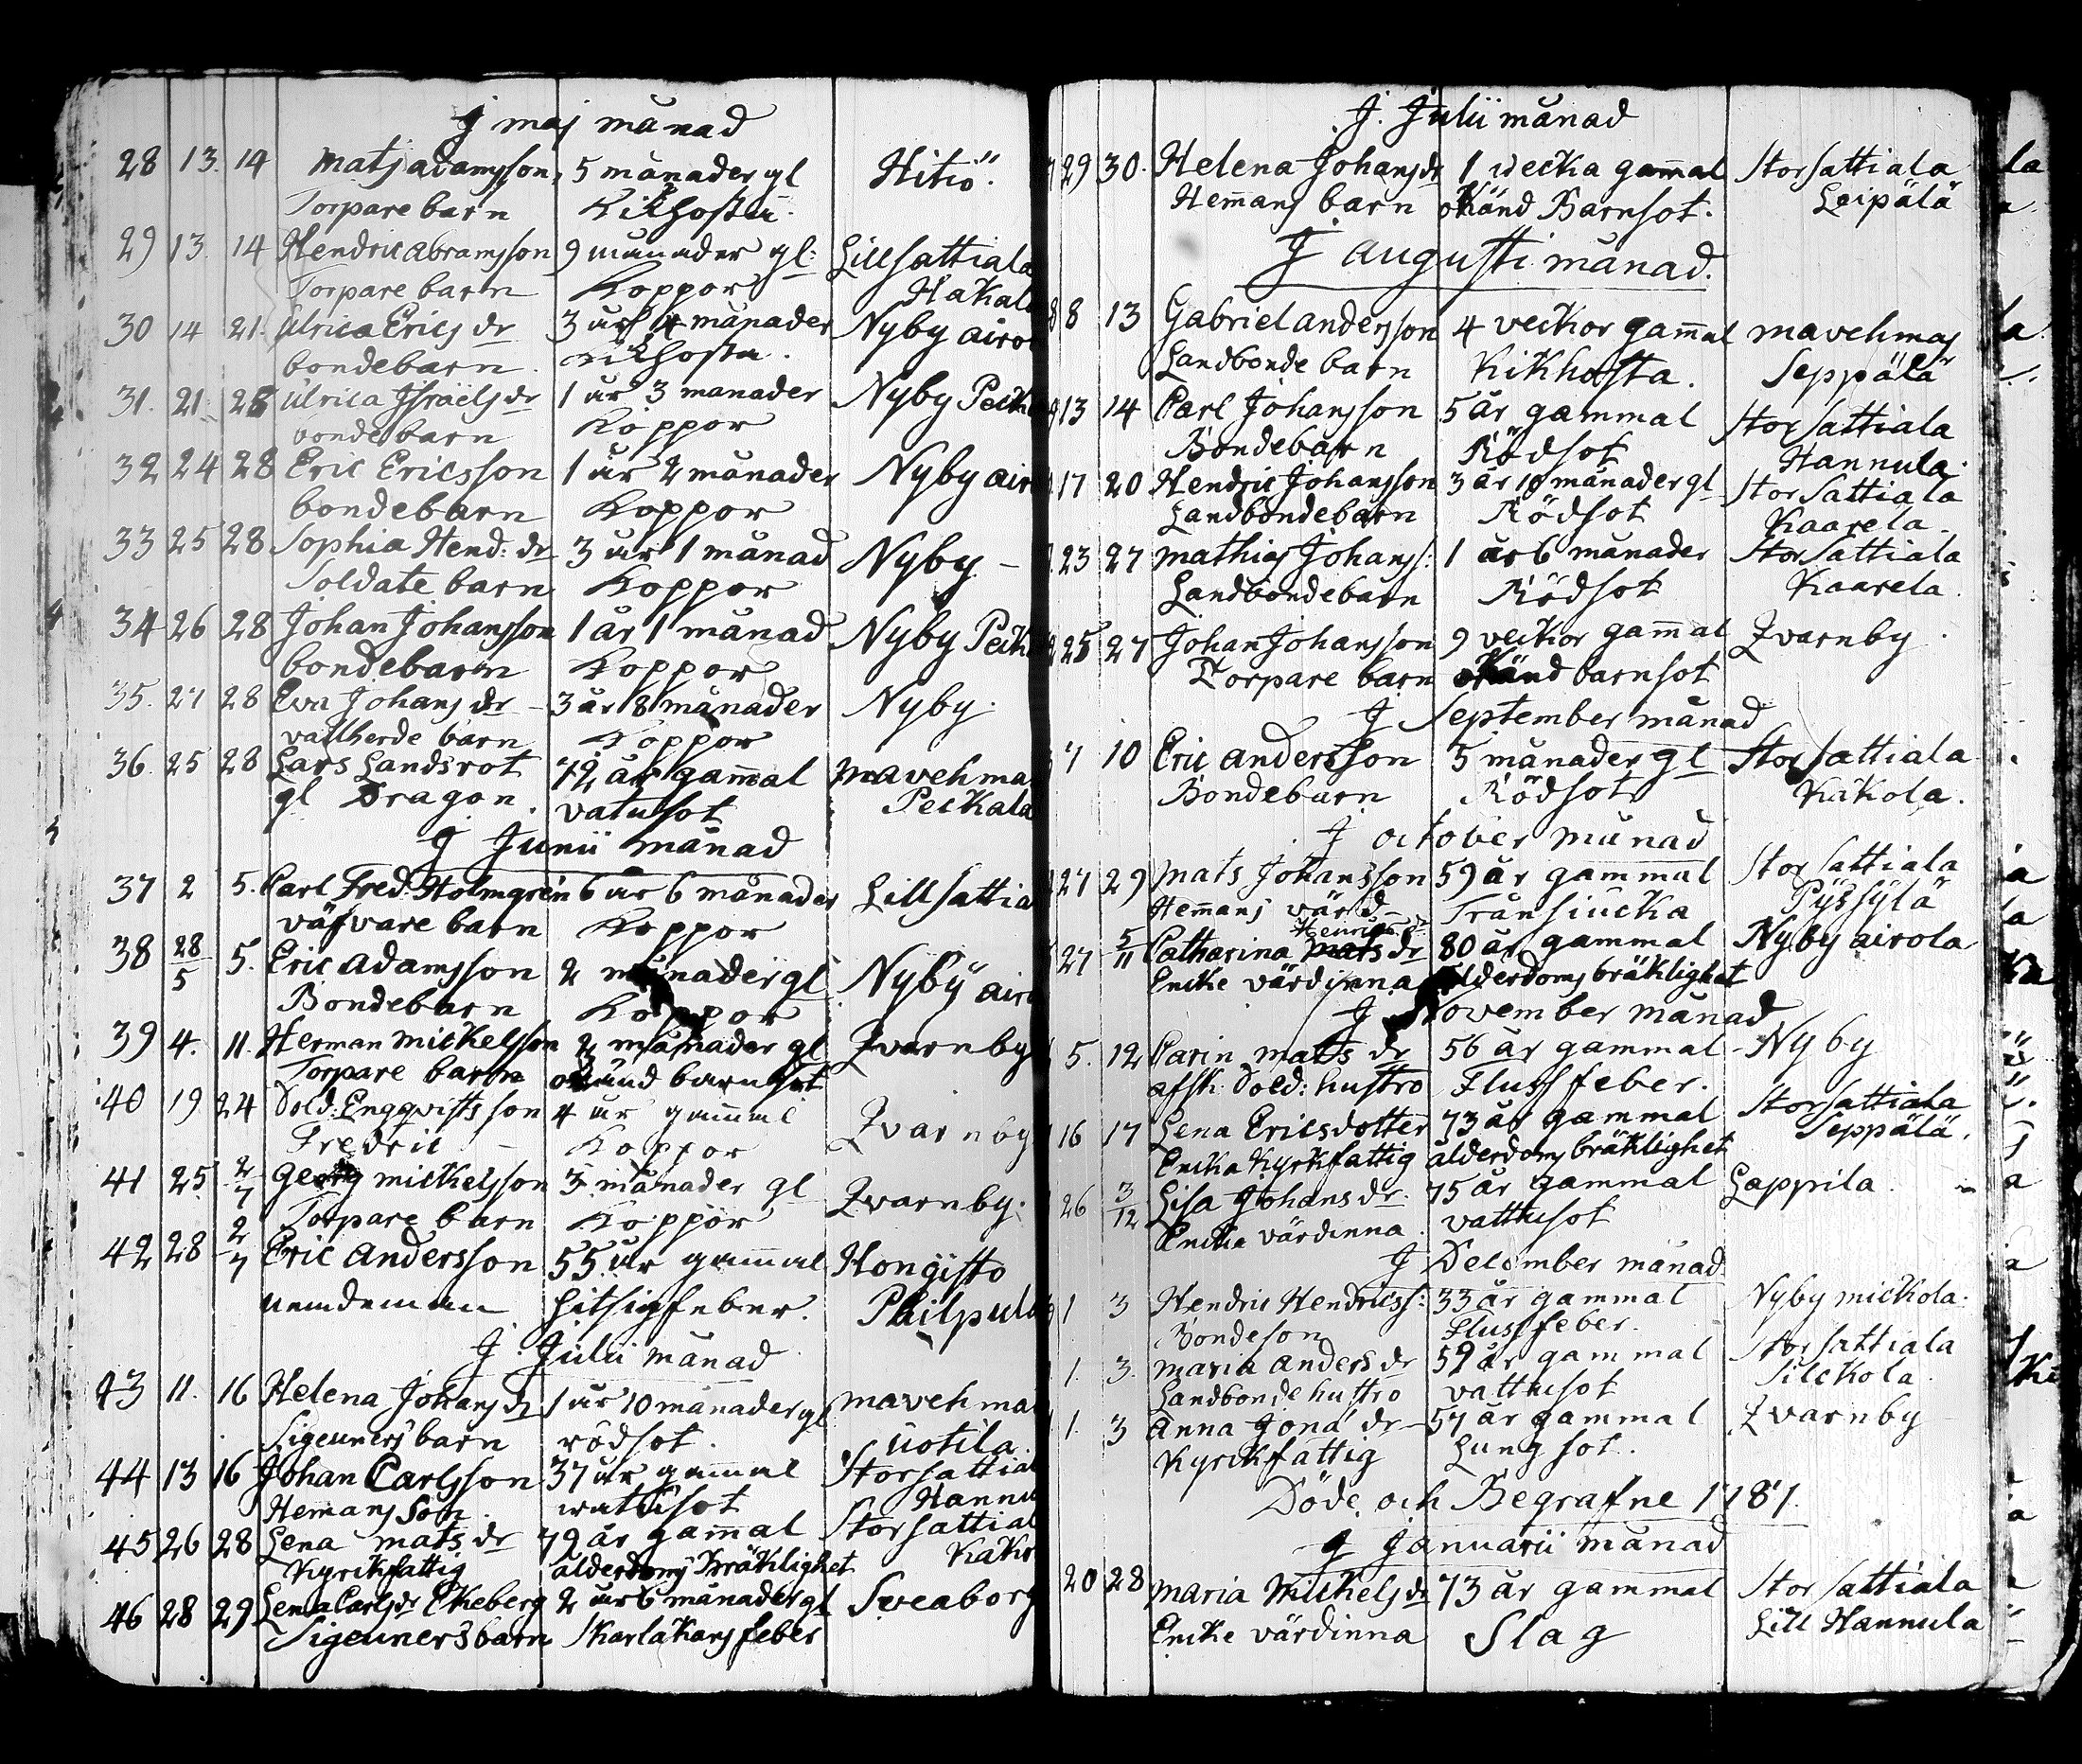 J maj månad
28 13. 14 Matj adamsson, 5 månader gl Hitiö.
Torpare barn Kikhosta.
29 13. 14 Hendric abramsson 9 månader gl: Lillsattiala
Torpare barn Koppor Hakala
30 14 21. Ulrica Erics dr 3 år 4 månader Nyby airol
bondebarn. Kikhosta.
31. 21. 28 Ulrica Israels dr 1 år 3 månader Nyby Peck
bondebarn Koppor
32 24 28 Eric Ericsson 1 år 2 månader Nyby air
bondebarn Koppor
33 25 28 Sophia Hend: dr 3 år 1 månad Nyby -
Soldate barn Koppor
34 26 28 Johan Johansson 1 år 1 månad Nyby Peck
bondebarn Koppor
35. 27 28 Eva Johans dr - 3 år 8 månader Nyby.
vallherde barn Koppor
36. 25 28 Lars Landsrot 72 år gam̄al Mavehma
gl Dragon. vatusot Peckala
J Junii månad
37 2 5. Carl Fred. Holmgren 6 år 6 månader Lillsattia
väfvare barn Koppor
38 28/5 5. Eric adamsson 2 månader gl Nyby airo
Bondebarn Koppor
39 4. 11. Herman Mickelsson 2 månader gl Qvarnby
Torpare barn okänd barnsot
40 19 24 Sold: Engqvists son 4 år gam̄al Qvarnby
Fredric - Koppor
41 25 2/7 Georg mickelsson 3 månader gl Qvarnby.
Torpare barn Koppor
42 28 2/7 Eric Andersson 55 år gam̄al Hongisto
nemdeman hitsigfeber. Philpula
J. Julii månad
43 11. 16 Helena Johans dr 1 år 10 månader gl mavehma
Sigeuners barn rödsot. uotila.
44 13 16 Johan Carlsson 37 år gam̄al Storsattial
Hemans Son watusot Hannu
45 26 28 Lena mats dr 79 år gam̄al Storsattial
Kyrkfattig ålderdoms bräklighet Käko
46 28 29 Lena Carls dr Ekeberg 2 år 6 månader gl Sveaborg
Sigeuners barn skarlakans feber
J. Julii månad
29 30. Helena Johans dr 1 vecka gam̄al Storsattiala
Hem̄ans barn okänd Barnsot. Leipälä
J augusti månad.
8 13 Gabriel andersson 4 veckor gam̄al mavehmaj
Landbonde barn Kikhosta. Seppälä
13 14 Carl Johansson 5 år gammal Storsattiala
Bondebarn Rödsot Hannula
17 20 Hendric Johansson 3 år 10 månader gl Storsattiala
Landbondebarn Rödsot Kaarela.
23 27 mathias Johanss: 1 år 6 månader Storsattiala
Landbondebarn Rödsot Kaarela.
25 27 Johan Johansson 9 veckor gam̄al Qvarnby.
Torpare barn okänd barnsot
J September månad
7 10 Eric andersson 5 månader gl Storsattiala
Bondebarn Rödsot Käkola.
J october månad
27 29 mats Johansson 59 år gammal Storsattiala
Hem̄ans värd - Trånsiucka Pyssylä
27 5/11 Catharina mats dr 80 år gammal Nyby airola
Encke värdinna ålderdoms bräklighet
J November månad
5. 12 Carin mats dr 56 år gammal - Nyby
afsk: Sold: hustro Flussfeber.
16 17 Lena Ericsdotter 73 år gammal Storsattiala
Encka Kyrkfattig ålderdoms bräklighet Seppälä.
26 3/12 Lisa Johans dr. 75 år gammal Lappila.
Encka värdinna. vattusot
J December månad
1 3 Hendric Hendricss: 33 år gammal Nyby mickola.
Bondeson Flussfeber.
1. 3. maria anders dr 59 år gammal Storsattiala
Landbonde hustro vattusot Silckola.
1. 3 Anna Jona dr - 57 år gammal Qvarnby
Kyrckfattig Lungsot.
Döde och Begrafne 1787.
J Januarii månad
20 28 Maria Michels dr 73 år gammal Storsattiala
Encke värdinna Slag Lill Hannula